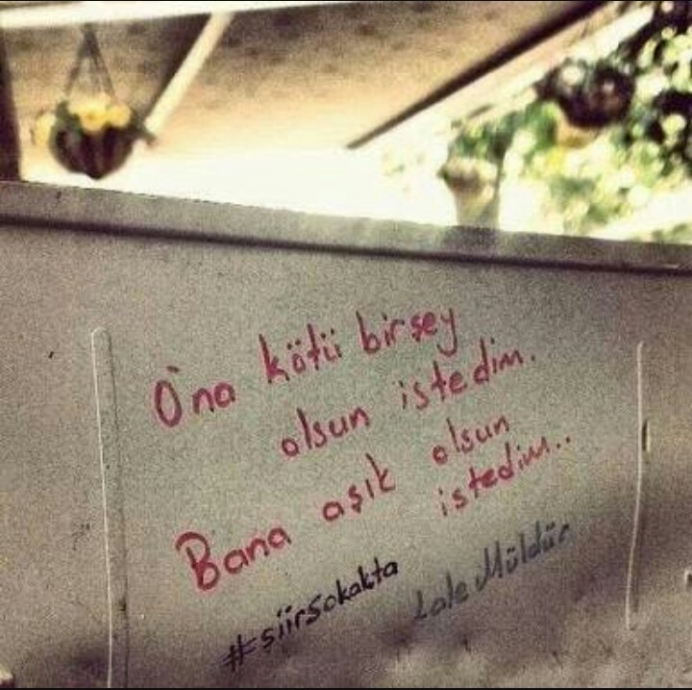 O'na kötü birşey
olsun istedim.
Bana aşık olsun
istedim..
#şiirSokakta
Lale Müldür